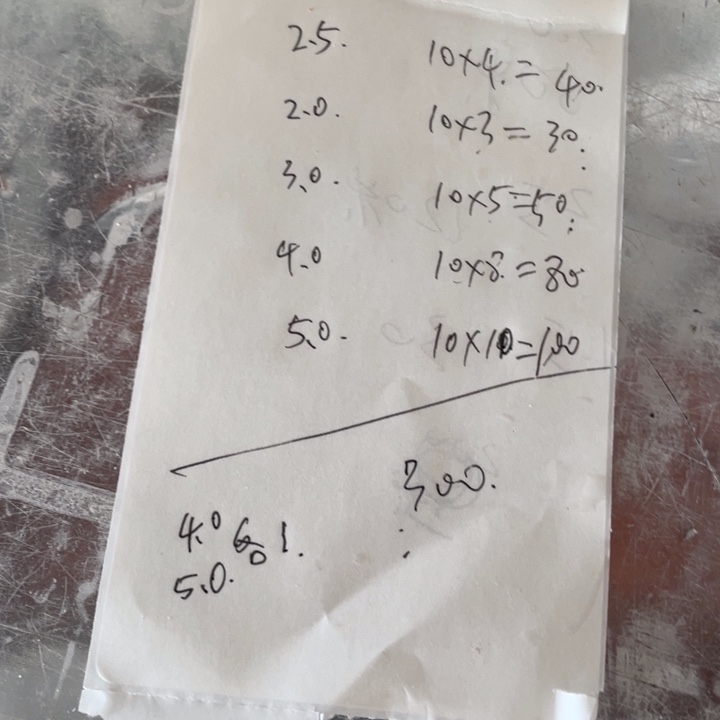 2.5. 10×4.=40.
2.0. 10×3=30.
3.0. 10×5=50.
4.0 10×8.=80
5.0. 10×10=100
300.
4.0
5.0.